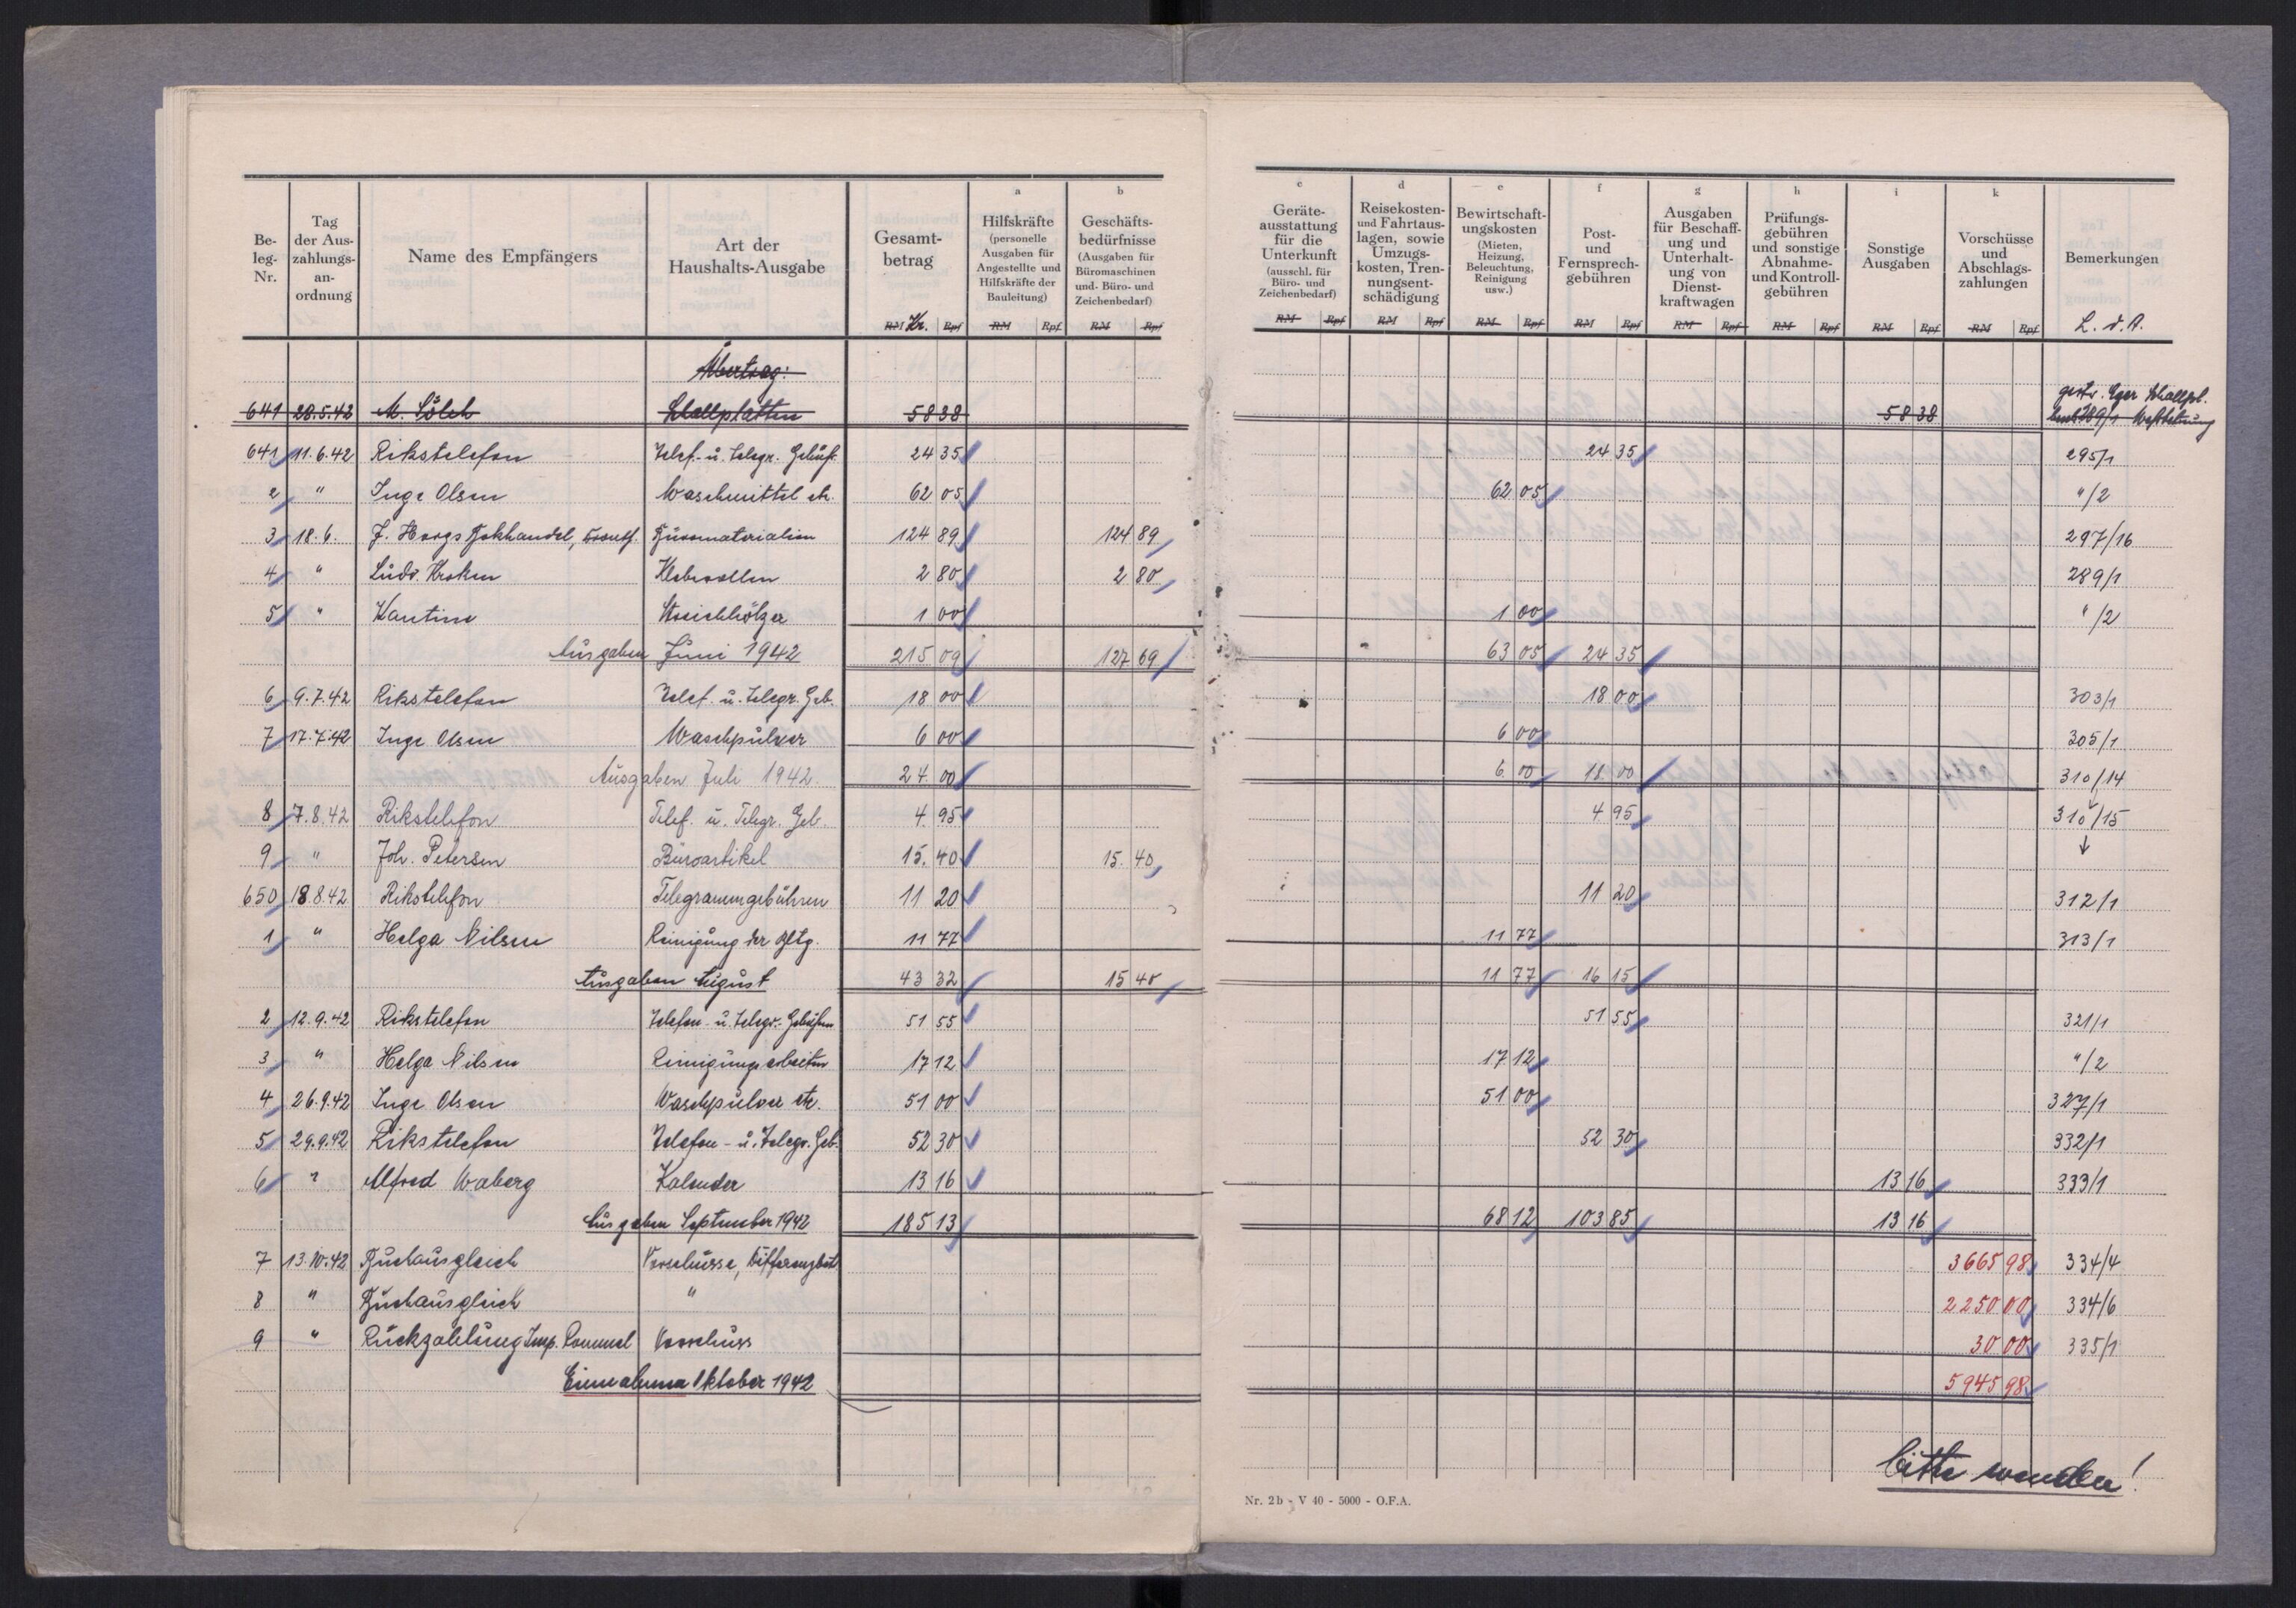 Be-leg-Nr. | Tag der Aus-zahlungs-an-ordnung | Name des Empfängers | Art der Haushalts-Ausgabe | Gesamt-betrag RM Kr. Rpf | a Hilfskräfte (personelle Ausgaben für Angestellte und Hilfskräfte der Bauleitung) RM Rpf | b Geschäfts-bedürfnisse (Ausgaben für Büromaschinen und- Büro- und Zeichenbedarf) RM Rpf | c Geräte-ausstattung für die Unterkunft (ausschl. für Büro- und Zeichenbedarf) RM Rpf | d Reisekosten- und Fahrtaus-lagen, sowie Umzugs-kosten, Tren-nungsent-schädigung RM Rpf | e Bewirtschaft-ungskosten (Mieten, Heizung, Beleuchtung, Reinigung usw.) RM Rpf | f Post- und Fernsprech-gebühren RM Rpf | g Ausgaben für Beschaff-ung und Unterhalt-ung von Dienst-kraftwagen RM Rpf | h Prüfungs-gebühren und sonstige Abnahme- und Kontroll-gebühren RM Rpf | i Sonstige Ausgaben RM Rpf | k Vorschüsse und Abschlags-zahlungen RM Rpf | Bemerkungen L. d. A.
Übertrag:
641 28.5.42 M. Sölch Schallplatten 58 38 58 38
641 11.6.42 Rikstelefon Telef.- u. Telegr. Gebühr. 24 35 24 35 295/1
2 " Inge Olsen Waschmittel etc. 62 05 62 05 "/2
3 18.6. J. Haugs Bokhandel, Büromaterialien 124 89 124 89 297/16
4 " Ludv. Kroken Kleberollen 2 80 2 80 289/1
5 " Kantine Streichhölzer 1 00 1 00 "/2
Ausgaben Juni 1942 215 09 127 69 63 05 24 35
6 9.7.42 Rikstelefon Telef. u. Telegr. Geb. 18 00 18 00 303/1
7 17.7.42 Inge Olsen Waschpulver 6 00 6 00 305/1
Ausgaben Juli 1942. 24. 00 6. 00 18 00 310/14
8 7.8.42 Rikstelefon Telef. u. Telegr. Geb. 4. 95 4 95 310/15
9 " Joh. Petersen Büroartikel 15. 40 15. 40 ↓
650 18.8.42 Rikstelefon Telegrammgebühren 11 20 11 20 312/1
1 " Helga Nilsen Reinigung der Bltg. 11 77 11 77 313/1
Ausgaben August 43 32 15 40 11 77 16 15
2 12.9.42 Rikstelefon Telefon- u. Telegr.- Gebühren 51 55 51 55 321/1
3 " Helga Nilsen Reinigungsarbeiten 17 12 17 12 "/2
4 26.9.42 Inge Olsen Waschpulver etc. 51 00 51 00 327/1
5 29.9.42 Rikstelefon Telefon- u. Telegr. Geb. 52 30 52 30 332/1
6 " Alfred Waberg Kalender 13 16 13 16 333/1
Ausgaben September 1942 185 13 68 12 103 85 13 16
7 13.10.42 Buchausgleich Vorschüsse, 3665 98 334/4
8 " Buchausgleich " 2250 00 334/6
9 " Rückzahlung Insp. Rommel Vorschuss 30 00 335/1
Einnahme Oktober 1942 5945 98
bitte wenden!
Nr. 2b - V 40 - 5000 - O.F.A.